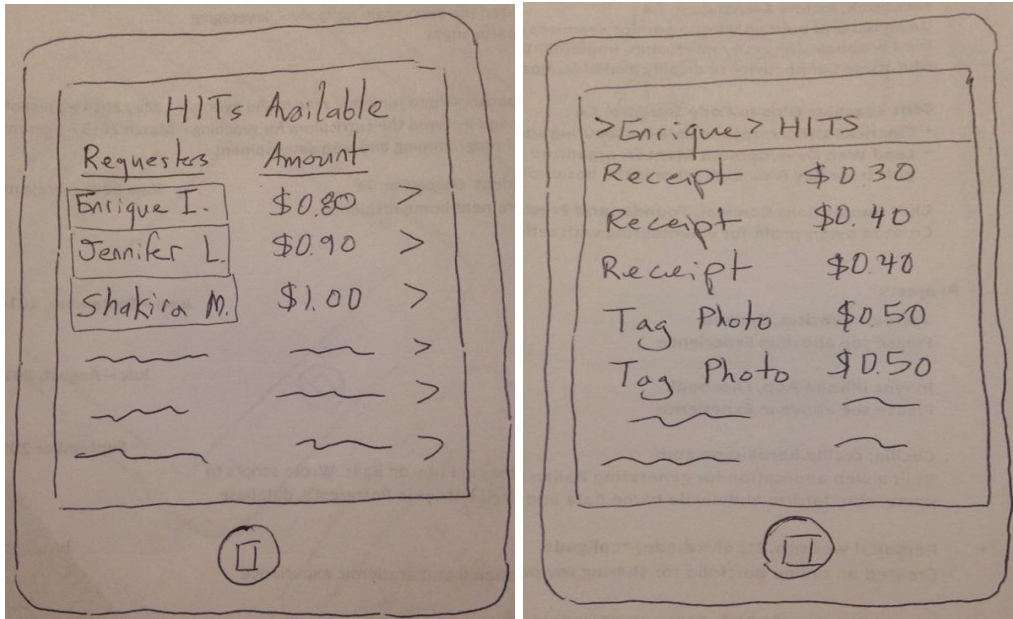 HITs Available
Requesters Amount
Enrique I. $0.80 >
Jennifer L. $0.90 >
Shakira M. $1.00 >
>
>
>
>Enrique > HITS
Receipt $0.30
Receipt $0.40
Receipt $0.40
Tag Photo $0.50
Tag Photo $0.50